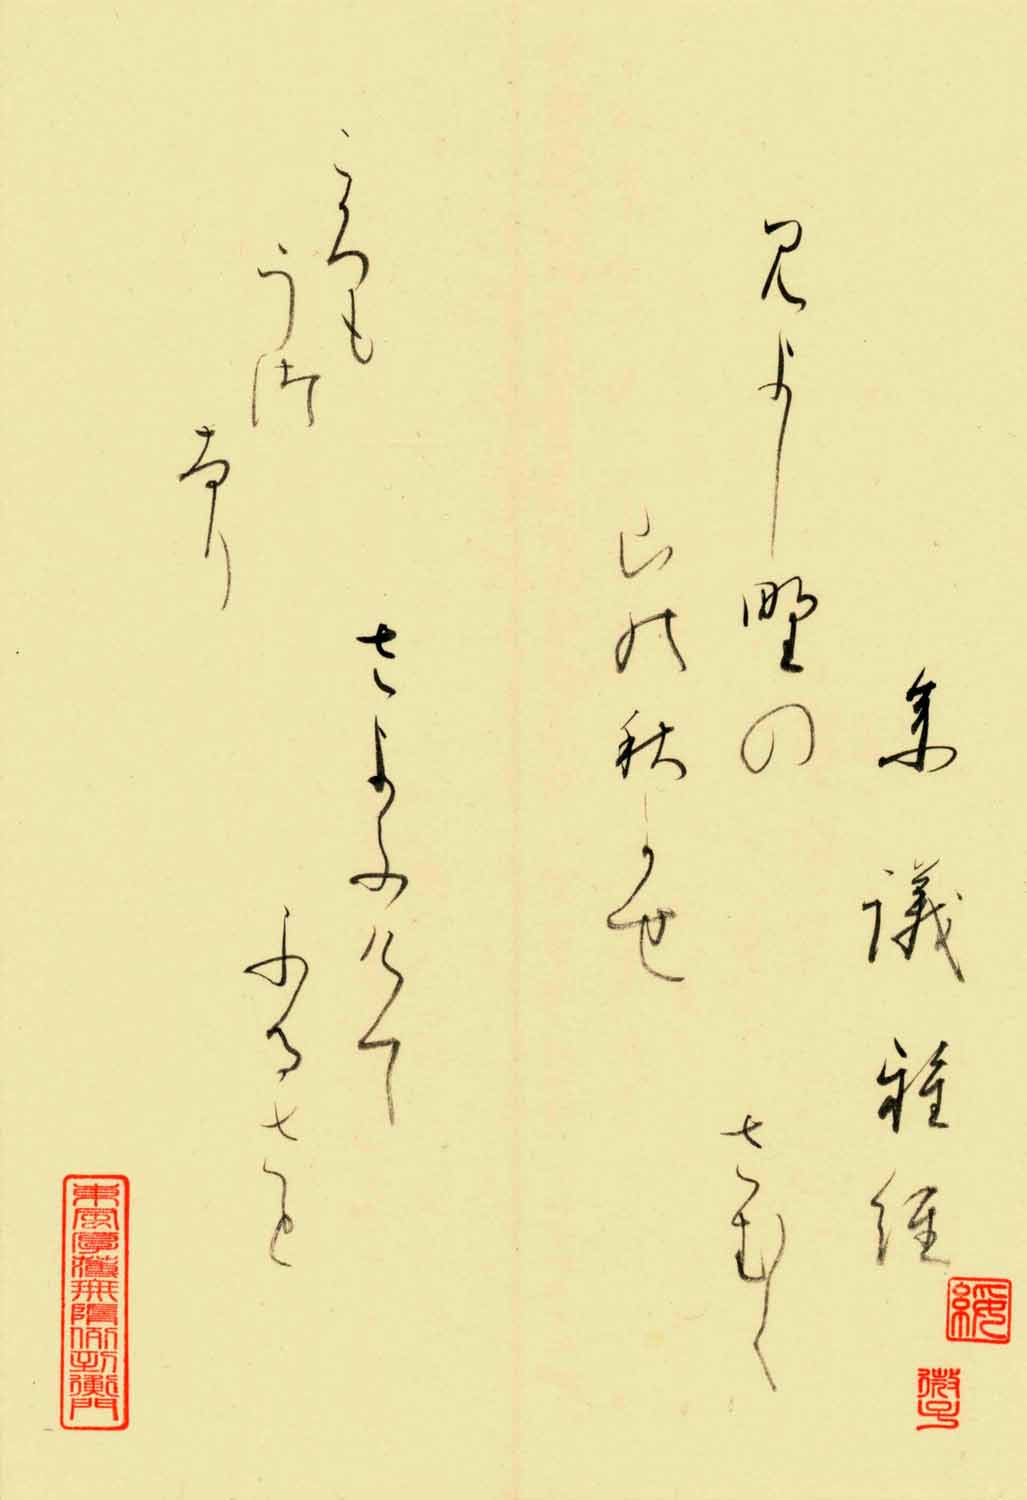 参議雅経
見よし野の
山の秋かせ
さよふけて
ふるさと
さむく
ころも
うつ
なり